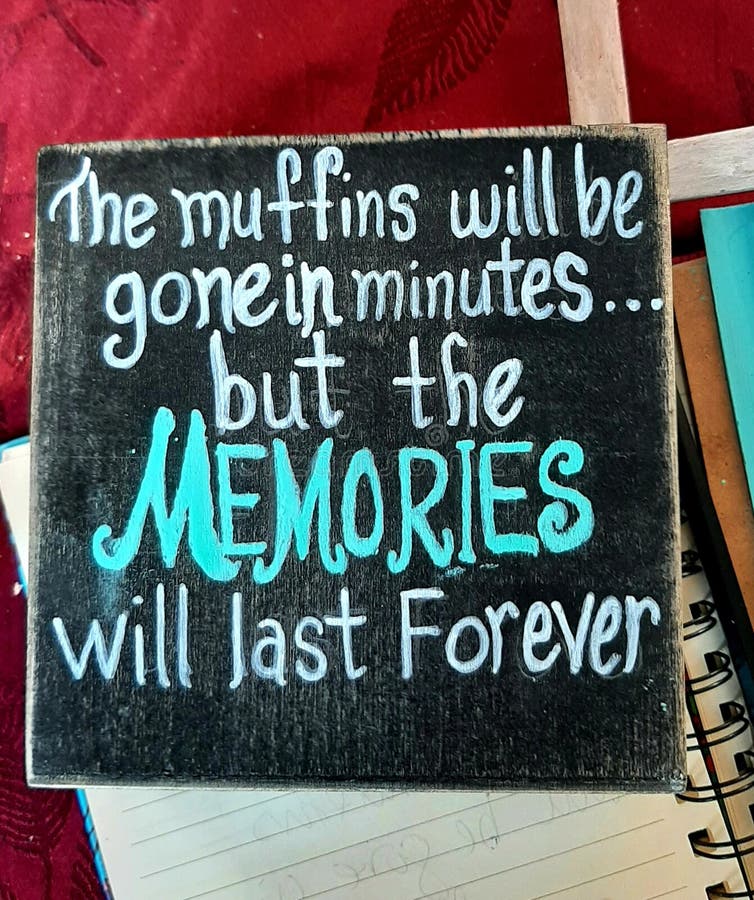 The muffins will be
gone in minutes...
but the
MEMORIES
will last Forever